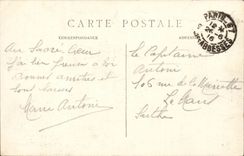 CARTE POSTALE
CORRESPONDANCE
Au Sacré Cœur
j'ai bien pensé à toi
bonnes amitiés et
bons baisers
Marie Antoine
PARIS
ABBESSES
Le Capitaine
Antoine
106 rue de la
Le Mans
Sarthe